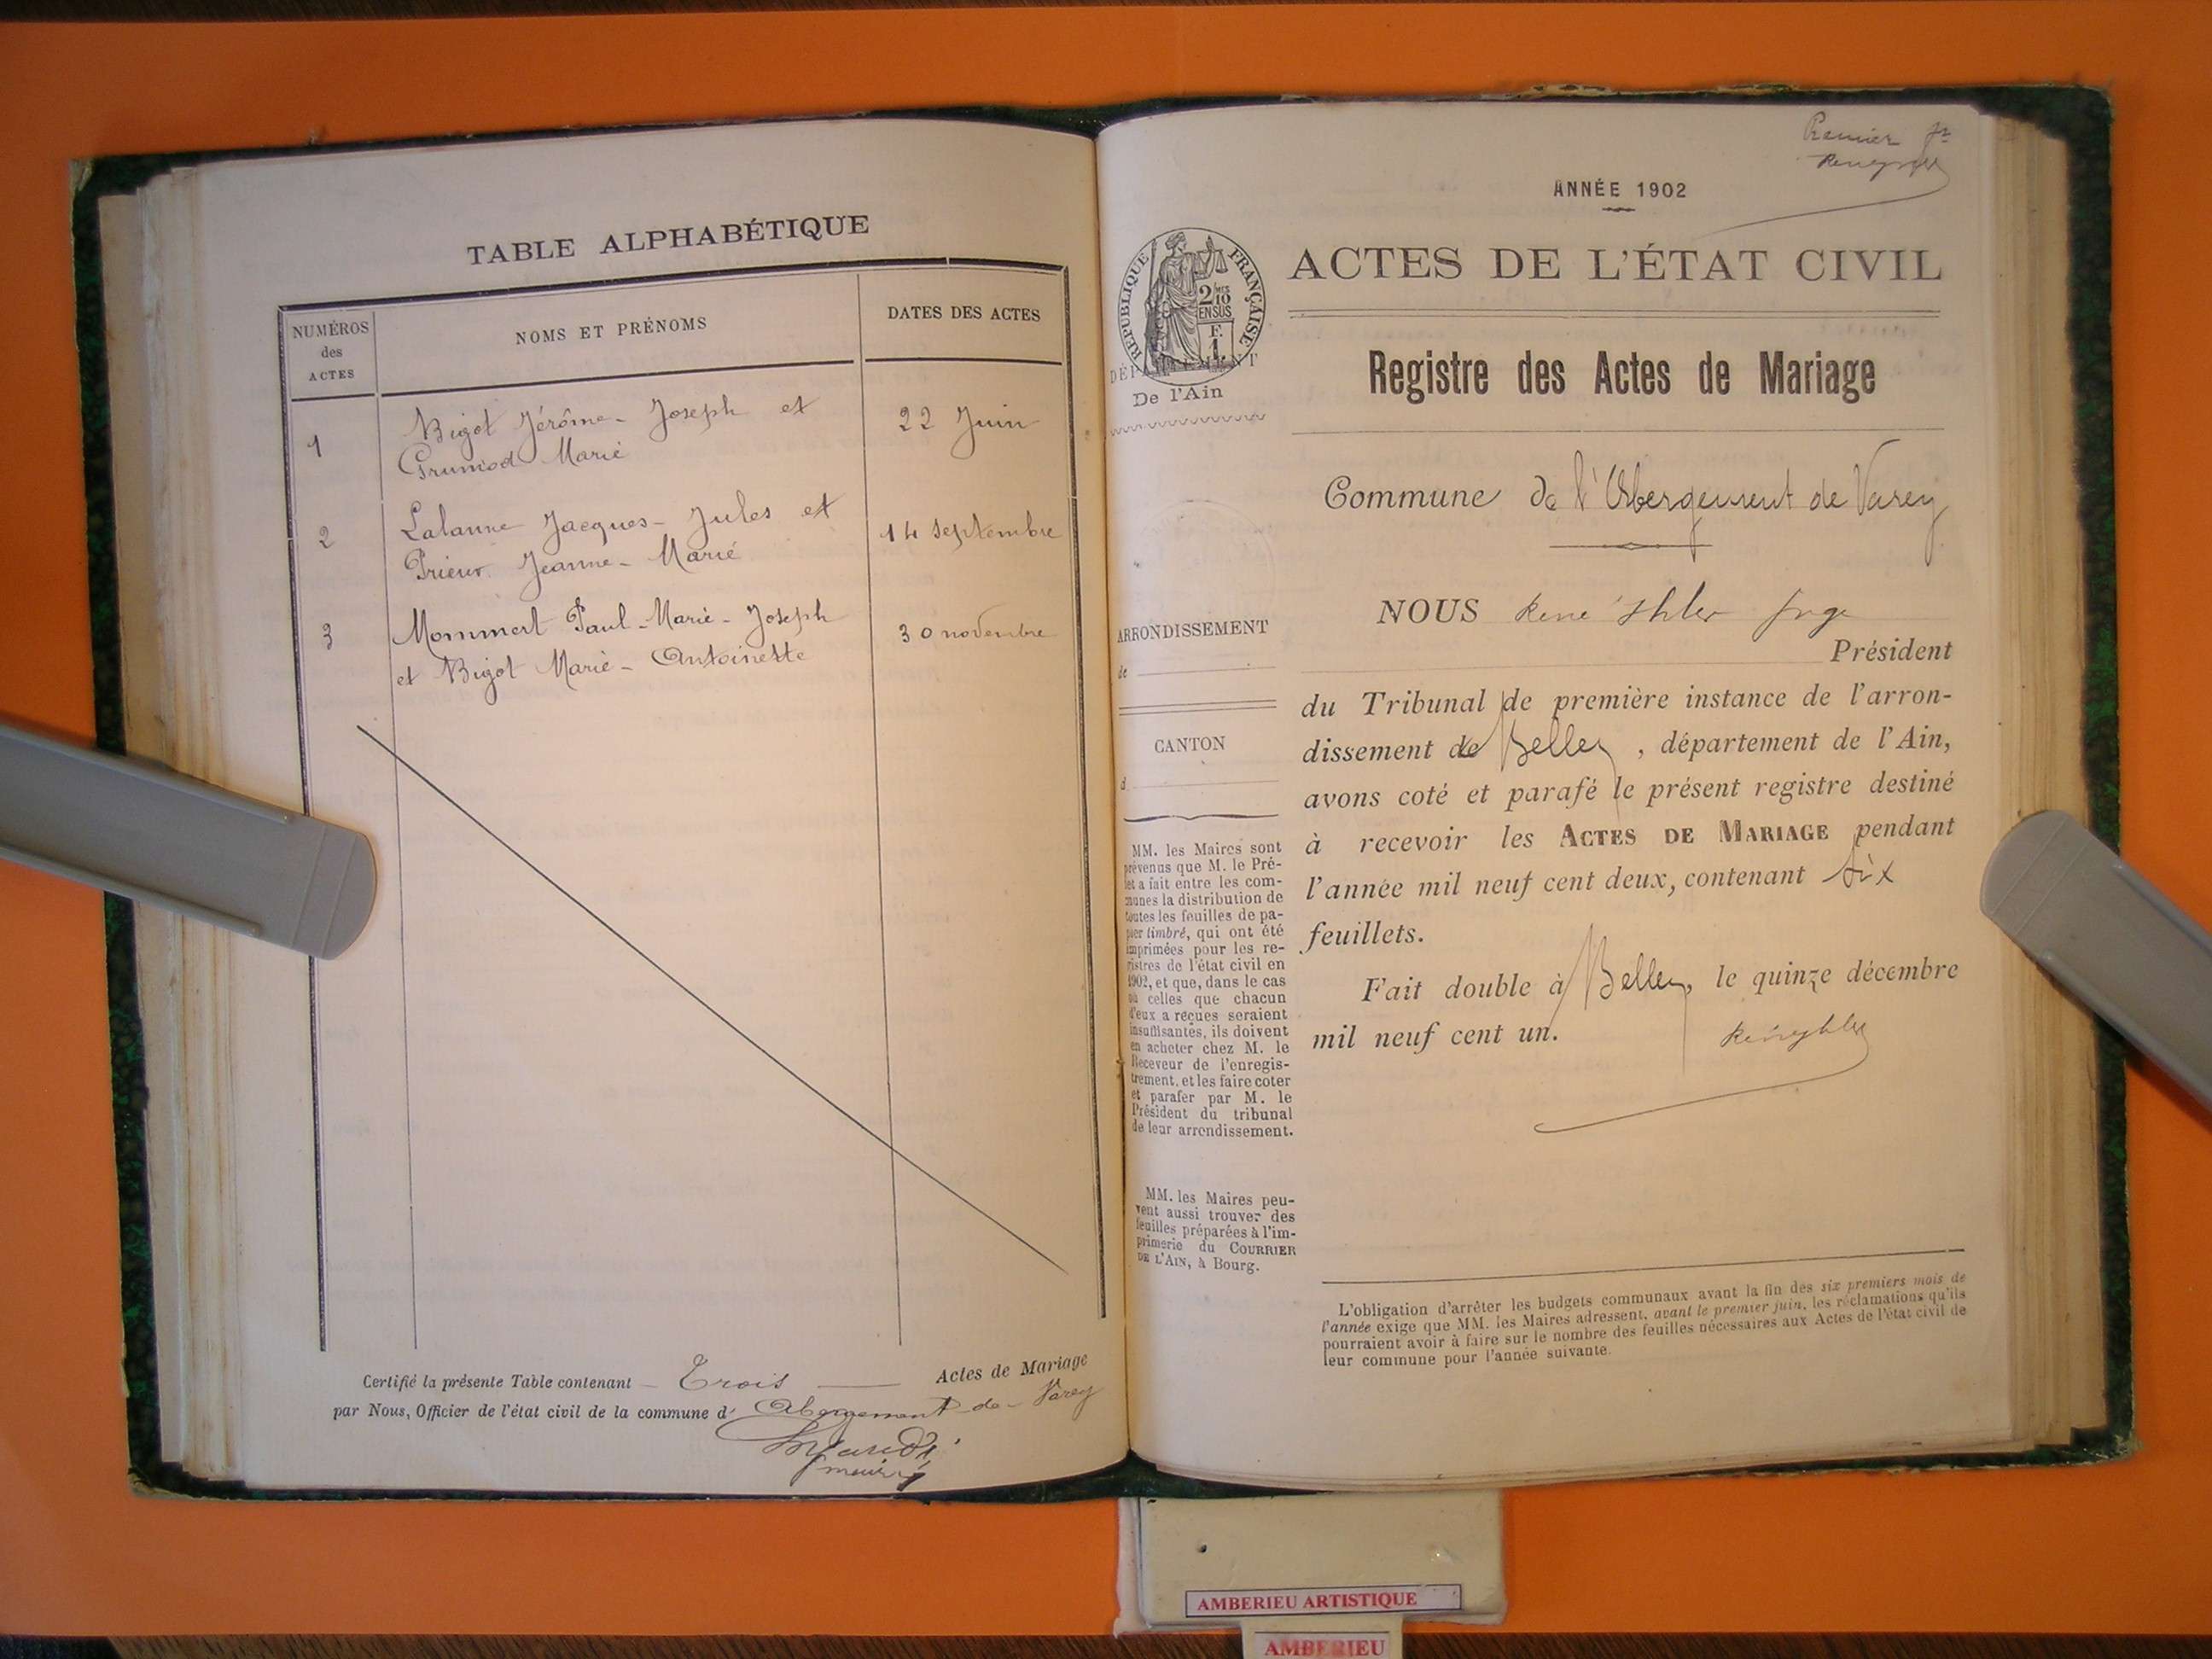 TABLE ALPHABÉTIQUE
NUMÉROS
des
ACTES
NOMS ET PRÉNOMS
DATES DES ACTES
1
Bigot Jérôme-Joseph et
Grumod Marie
22 Juin
2
Lalanne Jacques-Jules et
Prieur Jeanne-Marie
14 septembre
3
Mommert Paul-Marie-Joseph
et Bigot Marie-Antoinette
30 novembre
Certifié la présente Table contenant Trois Actes de Mariage
par Nous, Officier de l'état civil de la commune d' Abergement-de-Varey
Premier
ANNÉE 1902
RÉPUBLIQUE FRANÇAISE
2/10
EN SUS
F.
1.
DÉPARTEMENT
De l'Ain
ACTES DE L'ÉTAT CIVIL
Registre des Actes de Mariage
Commune de l'Abergement de Varey
ARRONDISSEMENT
de
CANTON
d
MM. les Maires sont
prévenus que M. le Pré-
fet a fait entre les com-
munes la distribution de
toutes les feuilles de pa-
pier timbré, qui ont été
imprimées pour les re-
gistres de l'état civil en
1902, et que, dans le cas
où celles que chacun
d'eux a reçues seraient
insuffisantes, ils doivent
en acheter chez M. le
Receveur de l'enregis-
trement, et les faire coter
et parafer par M. le
Président du tribunal
de leur arrondissement.
MM. les Maires peu-
vent aussi trouver des
feuilles préparées à l'im-
primerie du COURRIER
DE L'AIN, à Bourg.
NOUS René juge
Président
du Tribunal de première instance de l'arron-
dissement de Belley, département de l'Ain,
avons coté et parafé le présent registre destiné
à recevoir les ACTES DE MARIAGE pendant
l'année mil neuf cent deux, contenant six
feuillets.
Fait double à Belley, le quinze décembre
mil neuf cent un.
L'obligation d'arrêter les budgets communaux avant la fin des six premiers mois de
l'année exige que MM. les Maires adressent, avant le premier juin, les réclamations qu'ils
pourraient avoir à faire sur le nombre des feuilles nécessaires aux Actes de l'état civil de
leur commune pour l'année suivante.
AMBERIEU ARTISTIQUE
AMBERIEU